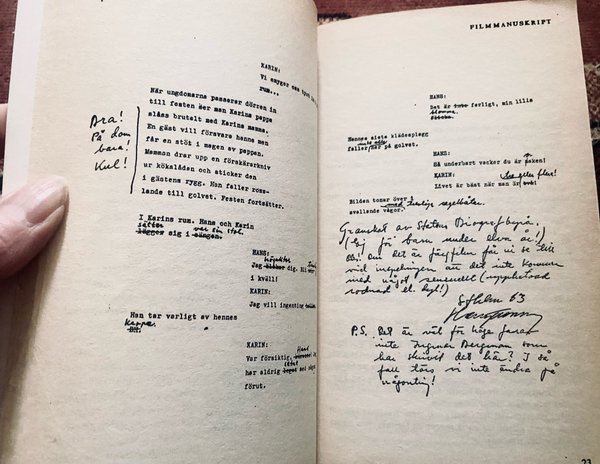 KARIN:
Vi smyger oss
rum...
När ungdomarna passerar dörren in
till festen ser man Karins pappa
slåss brutalt med Karins mamma.
En gäst vill försvara henne men
får en stöt i magen av pappan.
Mamman drar upp en förskärarkniv
ur kökslådan och sticker den
i gästens rygg. Han faller ross-
lande till golvet. Festen fortsätter.
Bra!
På dom
bara!
Kul!
I Karins rum. Hans och Karin
sätter var sin stol.
lägger sig i sängen.
HANS:
Jag dig. Bli
i kväll!
KARIN:
Jag vill ingenting
Han tar varligt av hennes
Kappa.
BH.
KARIN:
Var försiktig,
har aldrig legat med något
förut.
FILMMANUSKRIPT
HANS:
Det är inte farligt, min lilla
blomma.
Hennes sista klädesplagg
faller här på golvet.
inte alls
HANS:
Så underbart vacker du är naken!
KARIN:
Livet är bäst när man är två!
Tre eller flera!
Bilden tonar över i
med lustiga segelbåtar.
svallande vågor.
Granskat av Statens Biografbyrå.
(Ej för barn under elva år!)
Obs! om det är färgfilm får ni se till
vid inspelningen att det inte kommer
med något sensuellt (upphetsad
rodnad el. dyl!)
Sthlm 63
P.S. Det är väl för höge farao
inte Ingmar Bergman som
har skrivit det här? I så
fall törs vi inte ändra på
någonting!
23